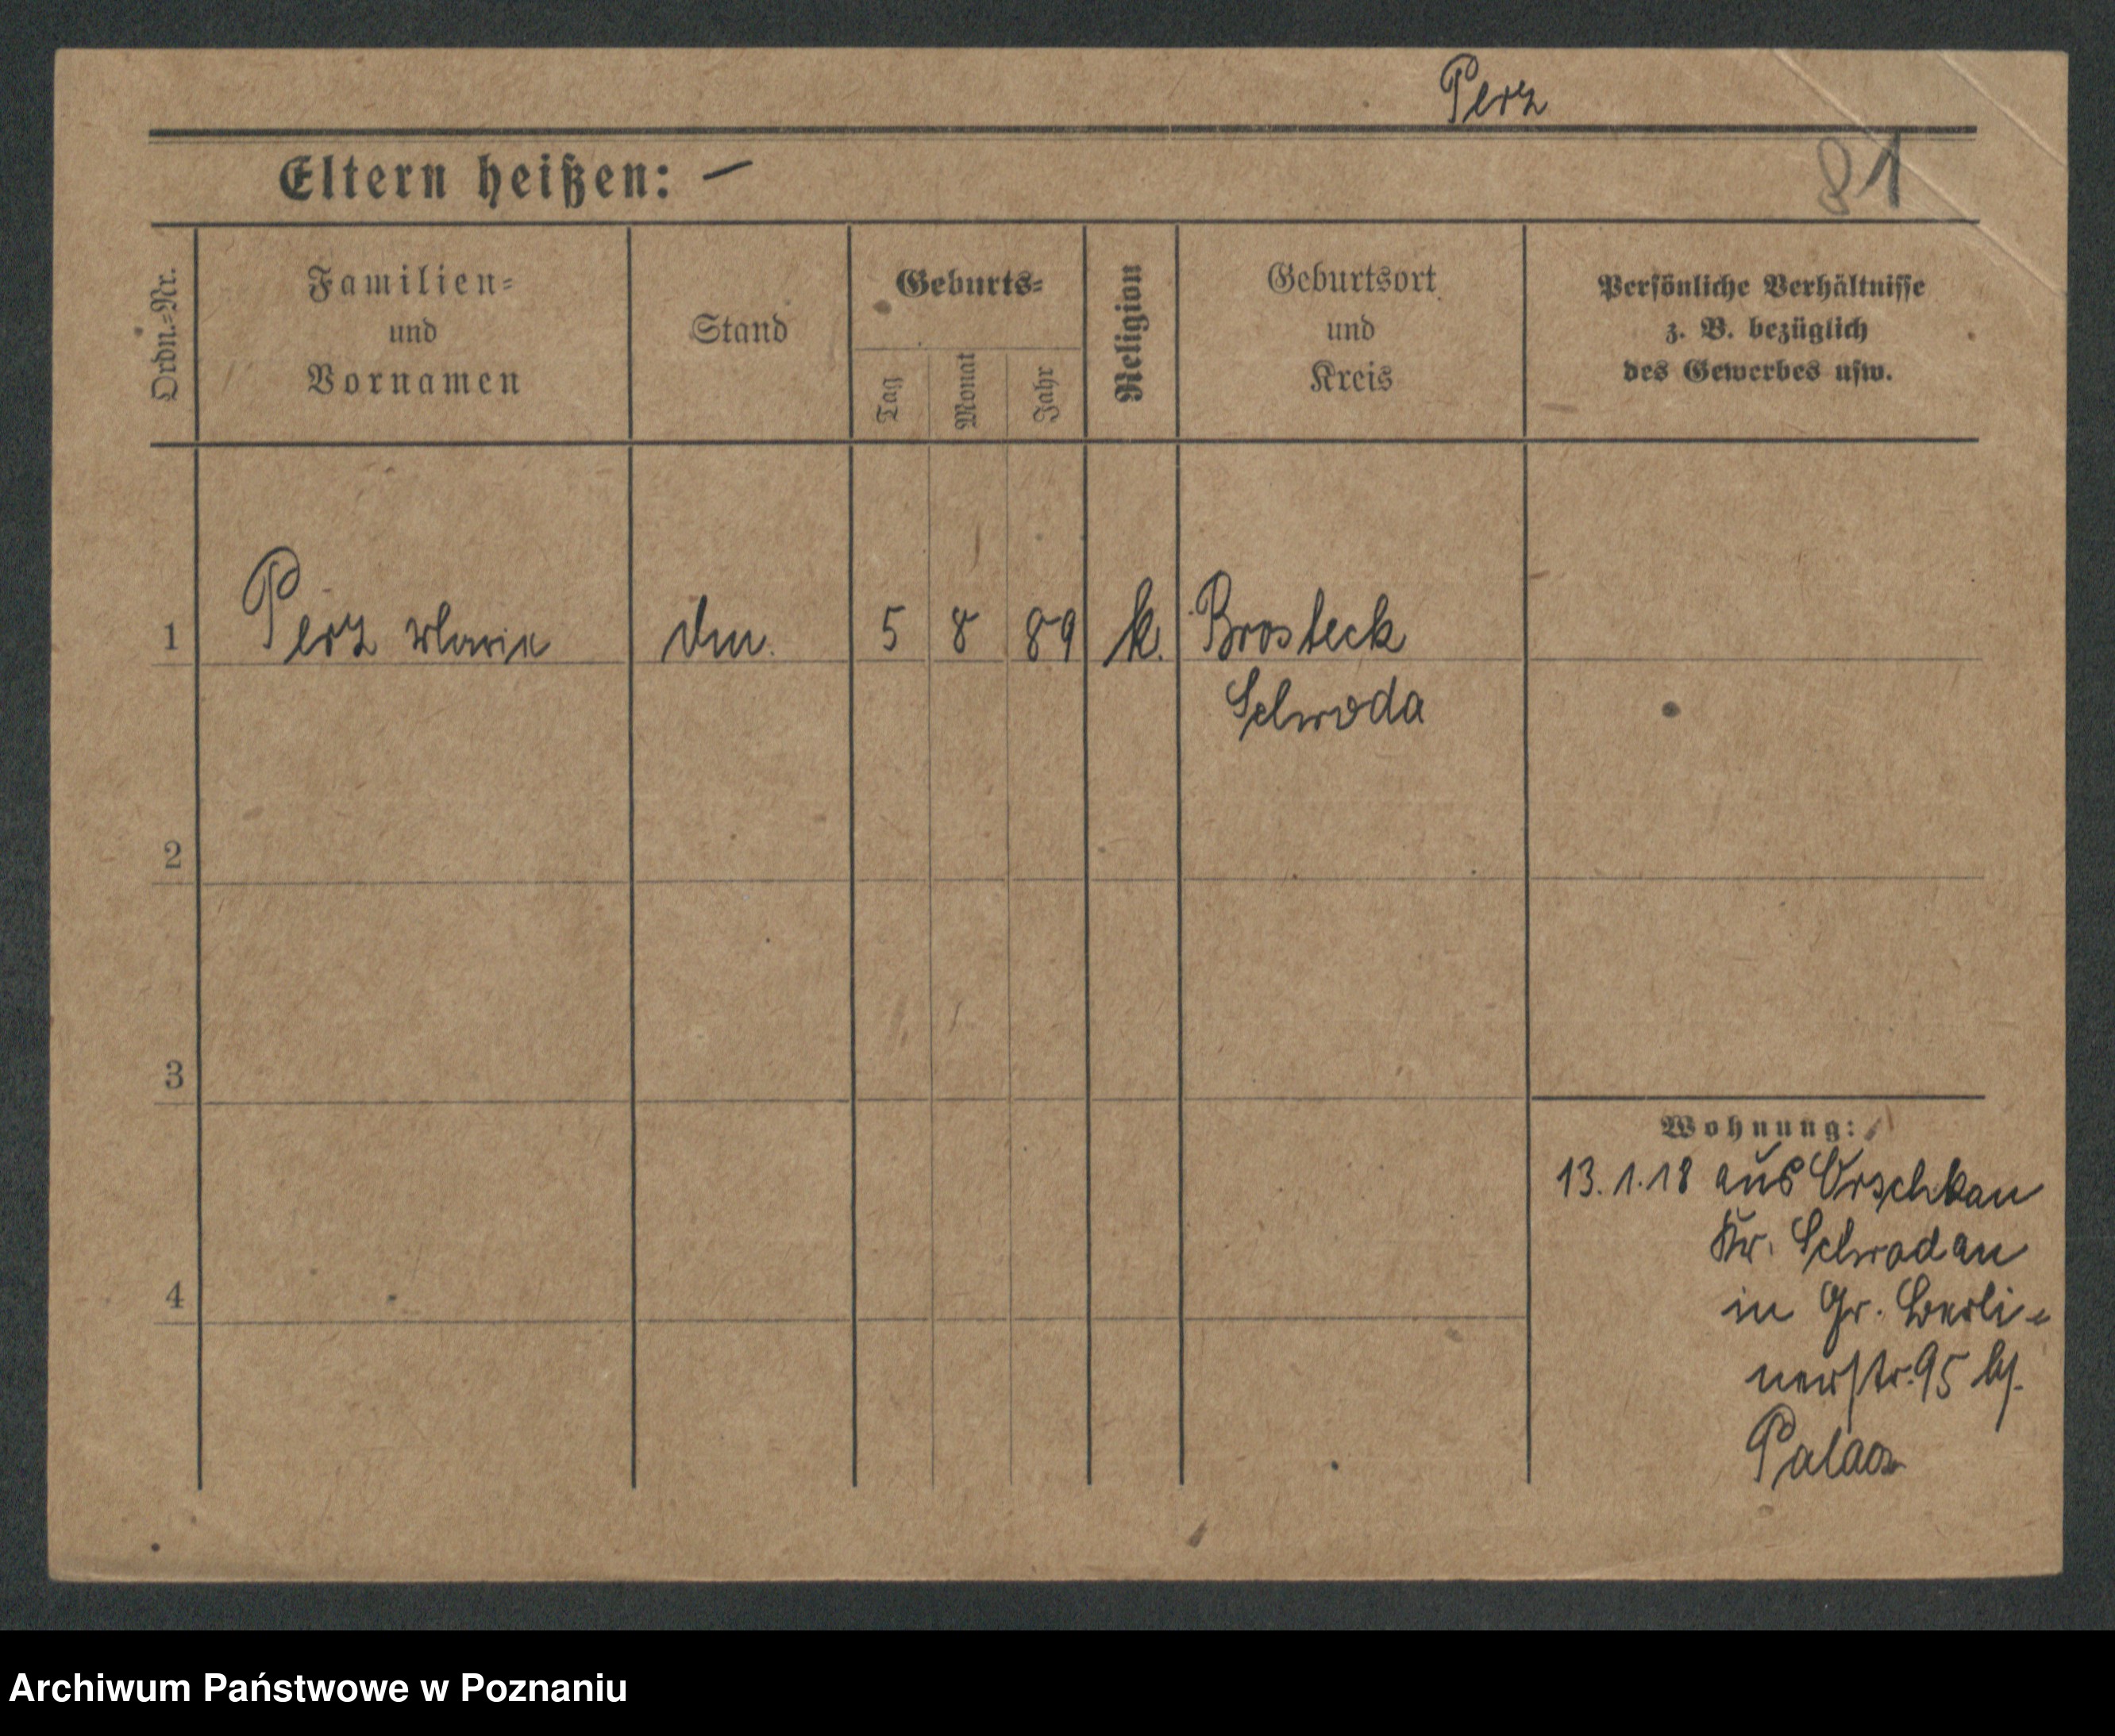 Perz
81
Eltern heißen: —
Ordn.=Nr.
Familien=
und
Vornamen
Stand
Geburts=
Tag
Monat
Jahr
Religion
Geburtsort
und
Kreis
Persönliche Verhältnisse
z. B. bezüglich
des Gewerbes usw.
1 Perz Marie 5 8 89 k. Brosteck
Schroda
2
3
4
Wohnung:
13.1.18 aus Orschkau
Kr. Schroda an
in Gr. Berli=
nerstr. 95 bei
Archiwum Państwowe w Poznaniu